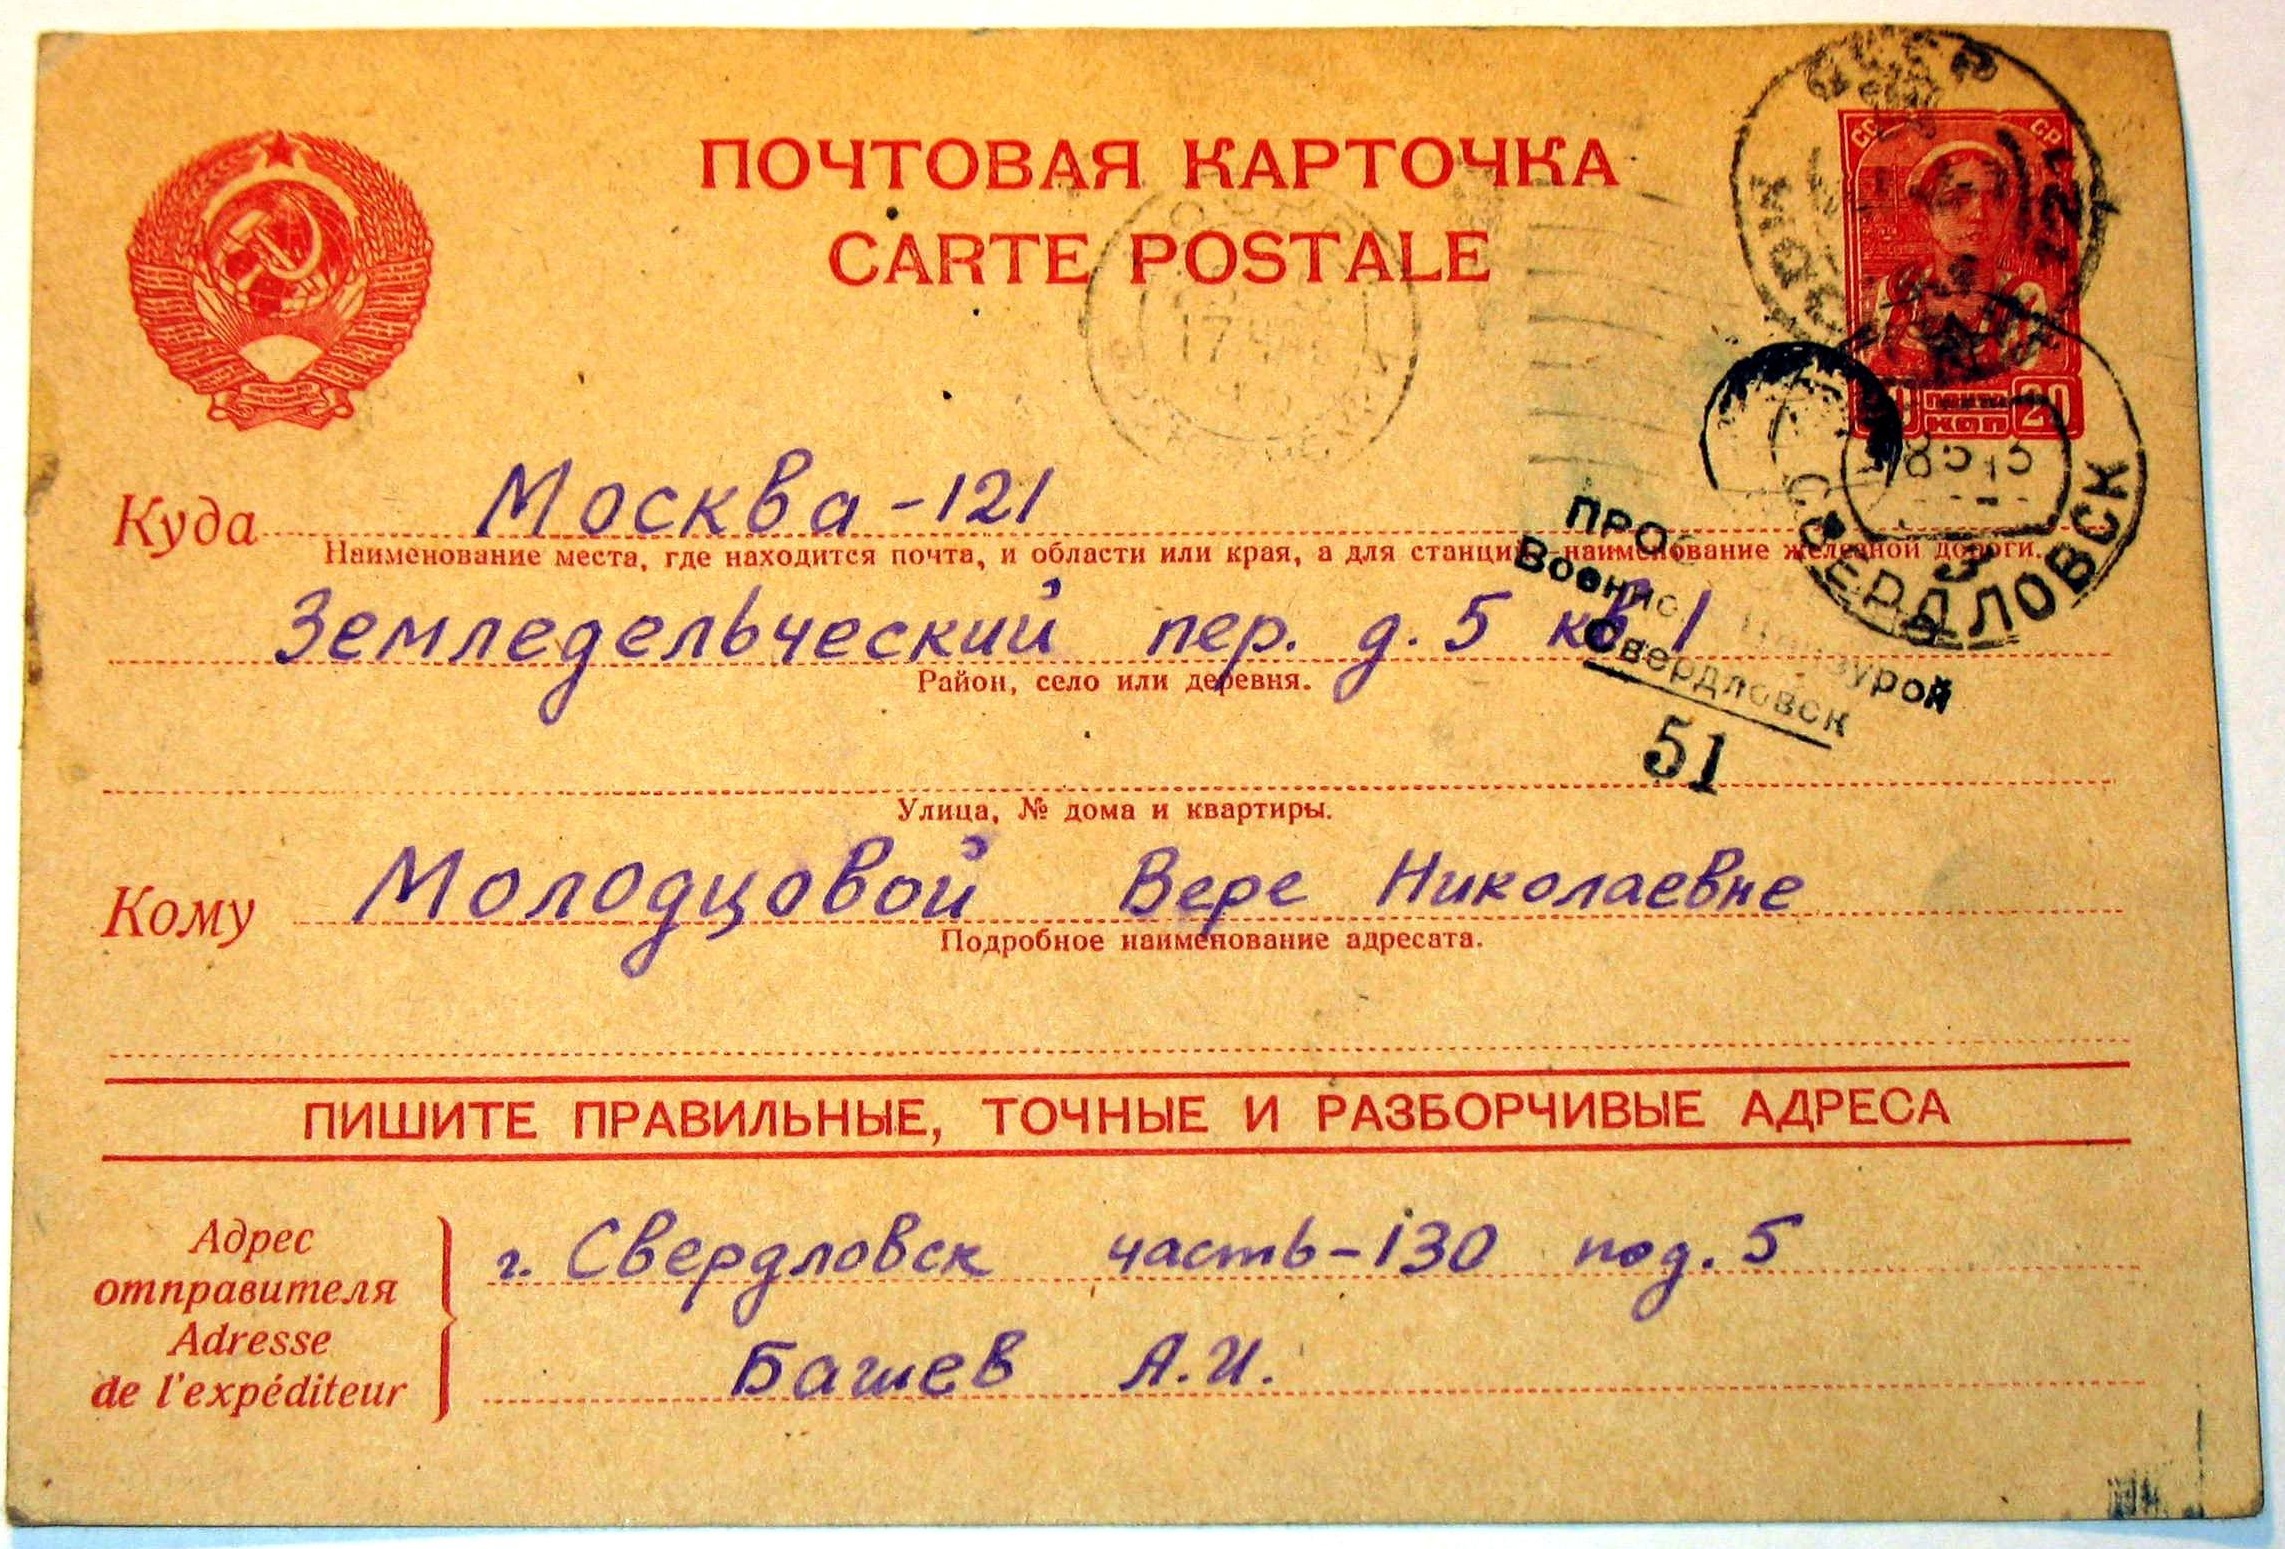 ПОЧТОВАЯ КАРТОЧКА
CARTE POSTALE
СС СР
20 КОП 20
Куда Москва-121
Наименование места, где находится почта, и области или края, а для станций наименование железной дороги.
Земледельческий пер. д. 5 кв 1
Район, село или деревня.
СВЕРДЛОВСК
Военно Цензурой
Свердловск
51
Улица, № дома и квартиры.
Кому Молодцовой Вере Николаевне
Подробное наименование адресата.
ПИШИТЕ ПРАВИЛЬНЫЕ, ТОЧНЫЕ И РАЗБОРЧИВЫЕ АДРЕСА
Адрес
отправителя
Adresse
de l'expéditeur
г. Свердловск часть-130 под. 5
Башев А.И.